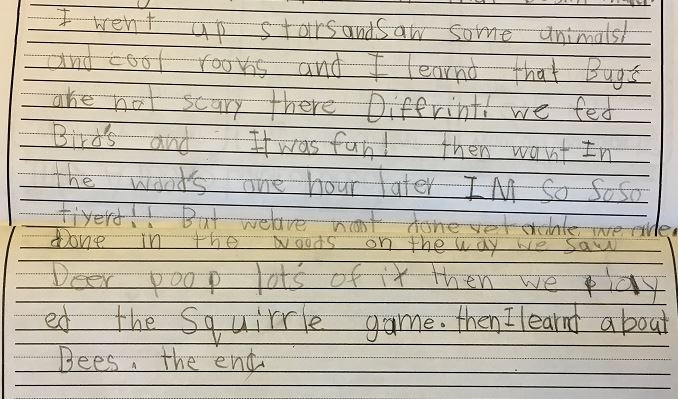 I went up stars and saw some animals!
and cool rooms and I learnd that Bug's
are not scary there Diffrint! we fed
Bird's and It was fun! then want In
the wood's one hour later IM So SoSo
tiyerd!! But we are not done yet we are
Done in the woods on the way we saw
Deer poop lots of it then we play
ed the Squirrle game. then I learnd about
Bees. the end.